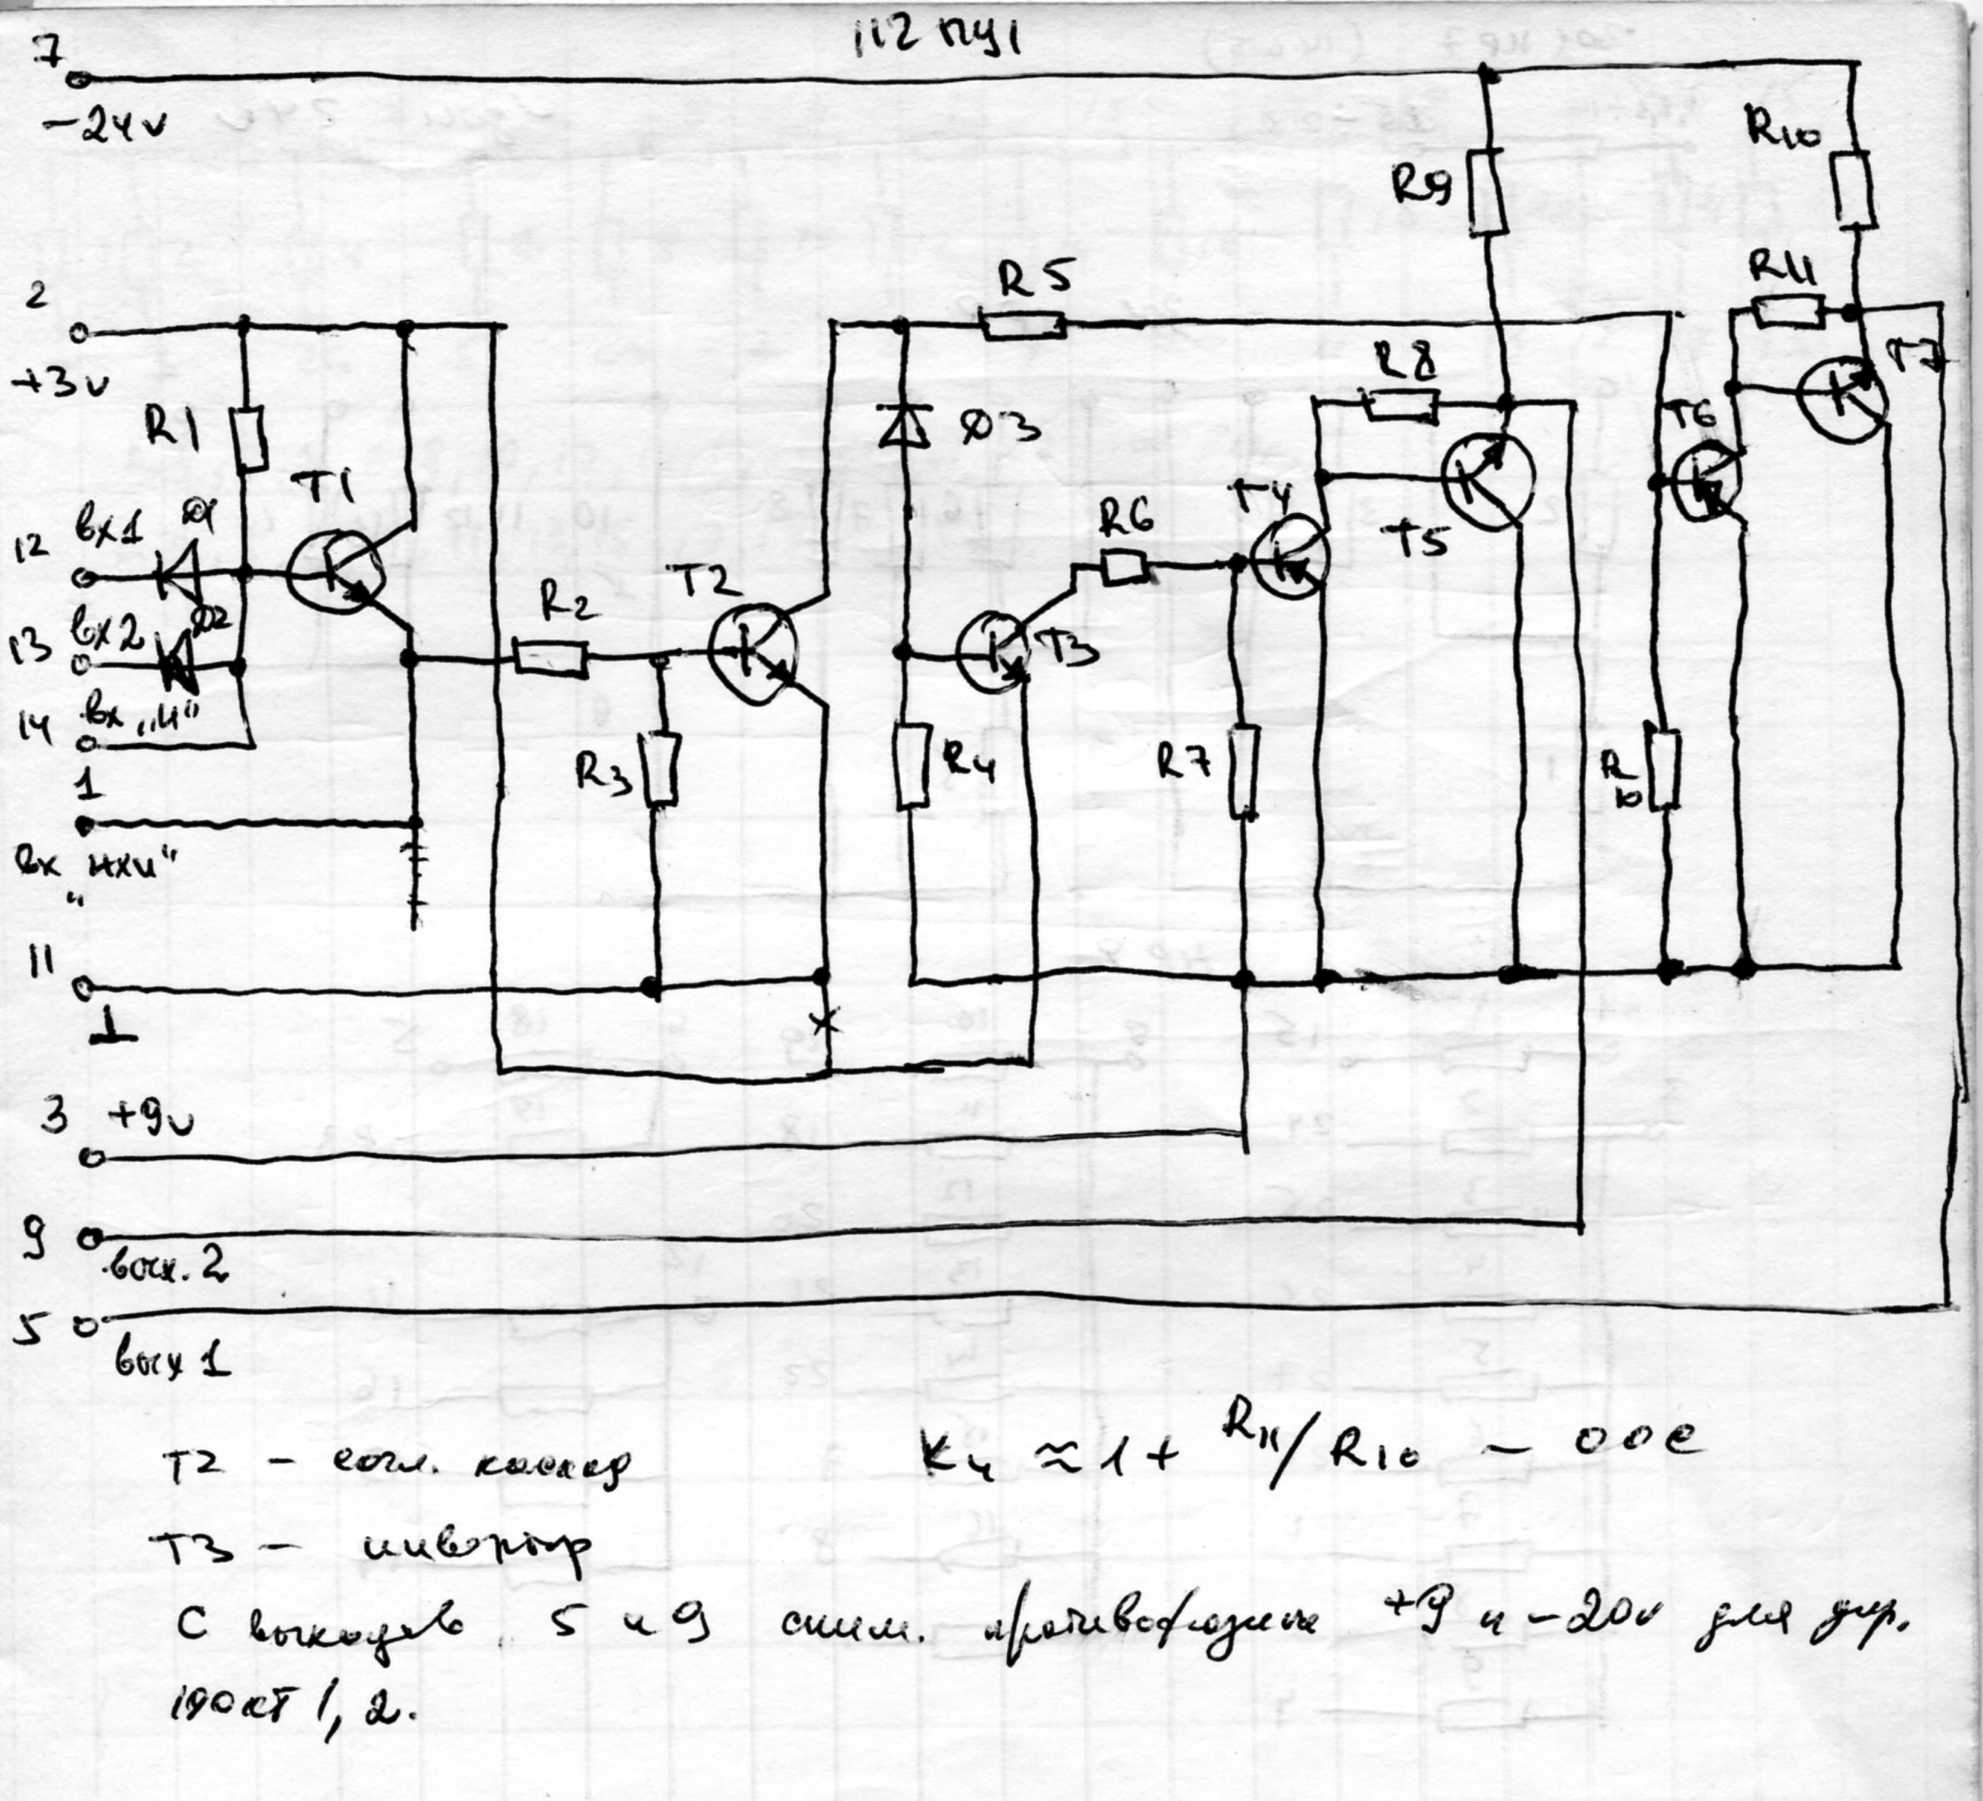 112 ПУ1
7
-24v
R10
R9
R11
2
R5
+3v
R8
T7
R1
Д3
T6
T1
Д1
12 вх1
R6
T4
T5
13 вх2
Д2
R2
T2
T3
14 вх „И"
R3
R4
R7
R10
1
вх "ИХИ"
11
⊥
3 +9v
9
вых. 2
5
вых 1
T2 - согл. каскад
Kу ≈ 1 + R11/R10 - ООС
T3 - инвертор
С выходов 5 и 9 сним. противофазные +9 и -20v для упр.
190КТ 1, 2.